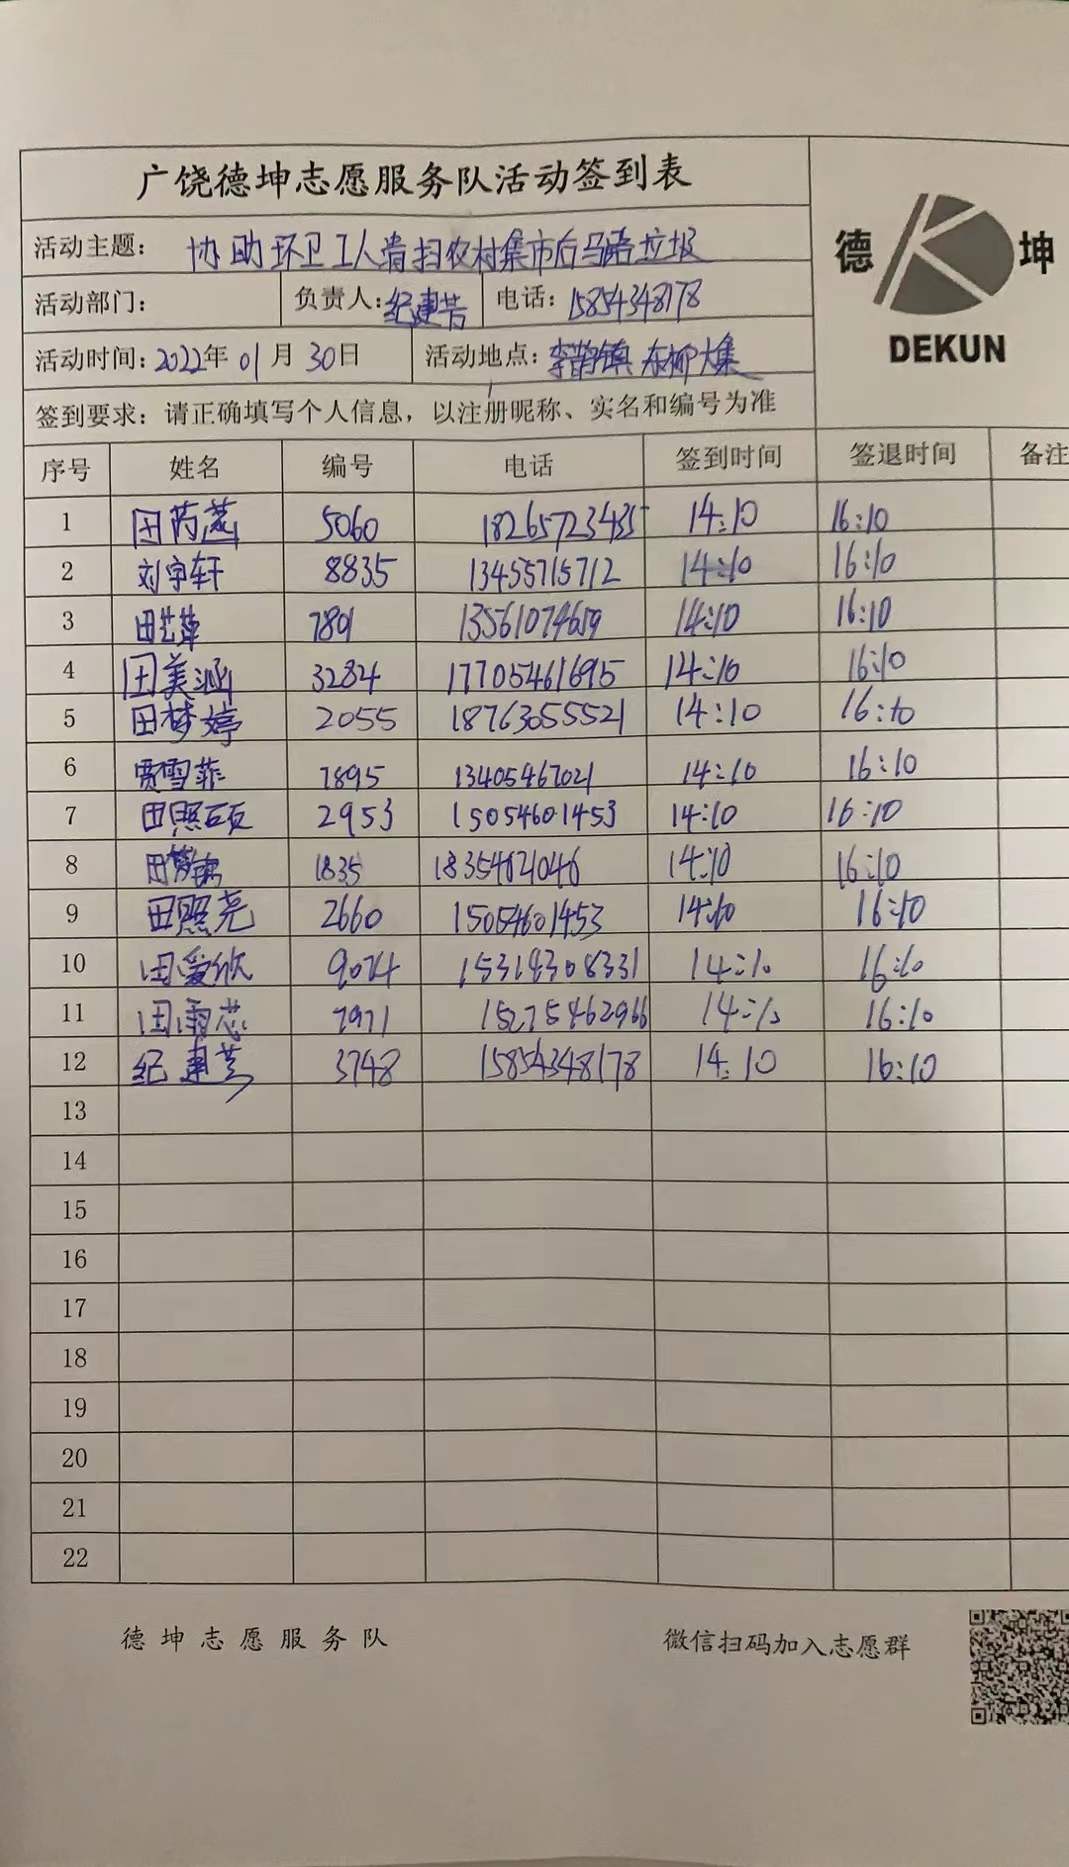 广饶德坤志愿服务队活动签到表
德 坤
DEKUN
活动主题: 协助环卫工人清扫农村集市后马路垃圾
活动部门: 负责人:纪建芳 电话:15854348178
活动时间:2022年01月30日 活动地点:李鹊镇 东柳大集
签到要求:请正确填写个人信息，以注册昵称、实名和编号为准
序号 姓名 编号 电话 签到时间 签退时间 备注
1 田芮蕊 5060 18265723435 14:10 16:10
2 刘宇轩 8835 13455715712 14:10 16:10
3 田艺萍 7801 13561074659 14:10 16:10
4 田美涵 3284 17705461695 14:10 16:10
5 田梦婷 2055 18763055521 14:10 16:10
6 贾雪菲 7895 13405467021 14:10 16:10
7 田照硕 2953 15054601453 14:10 16:10
8 田 1835 18354621046 14:10 16:10
9 田照尧 2660 15054601453 14:10 16:10
10 田爱欣 9074 15319308331 14:10 16:10
11 田雨芯 7971 15275462966 14:10 16:10
12 纪建芳 3748 15854348178 14:10 16:10
13
14
15
16
17
18
19
20
21
22
德坤志愿服务队 微信扫码加入志愿群